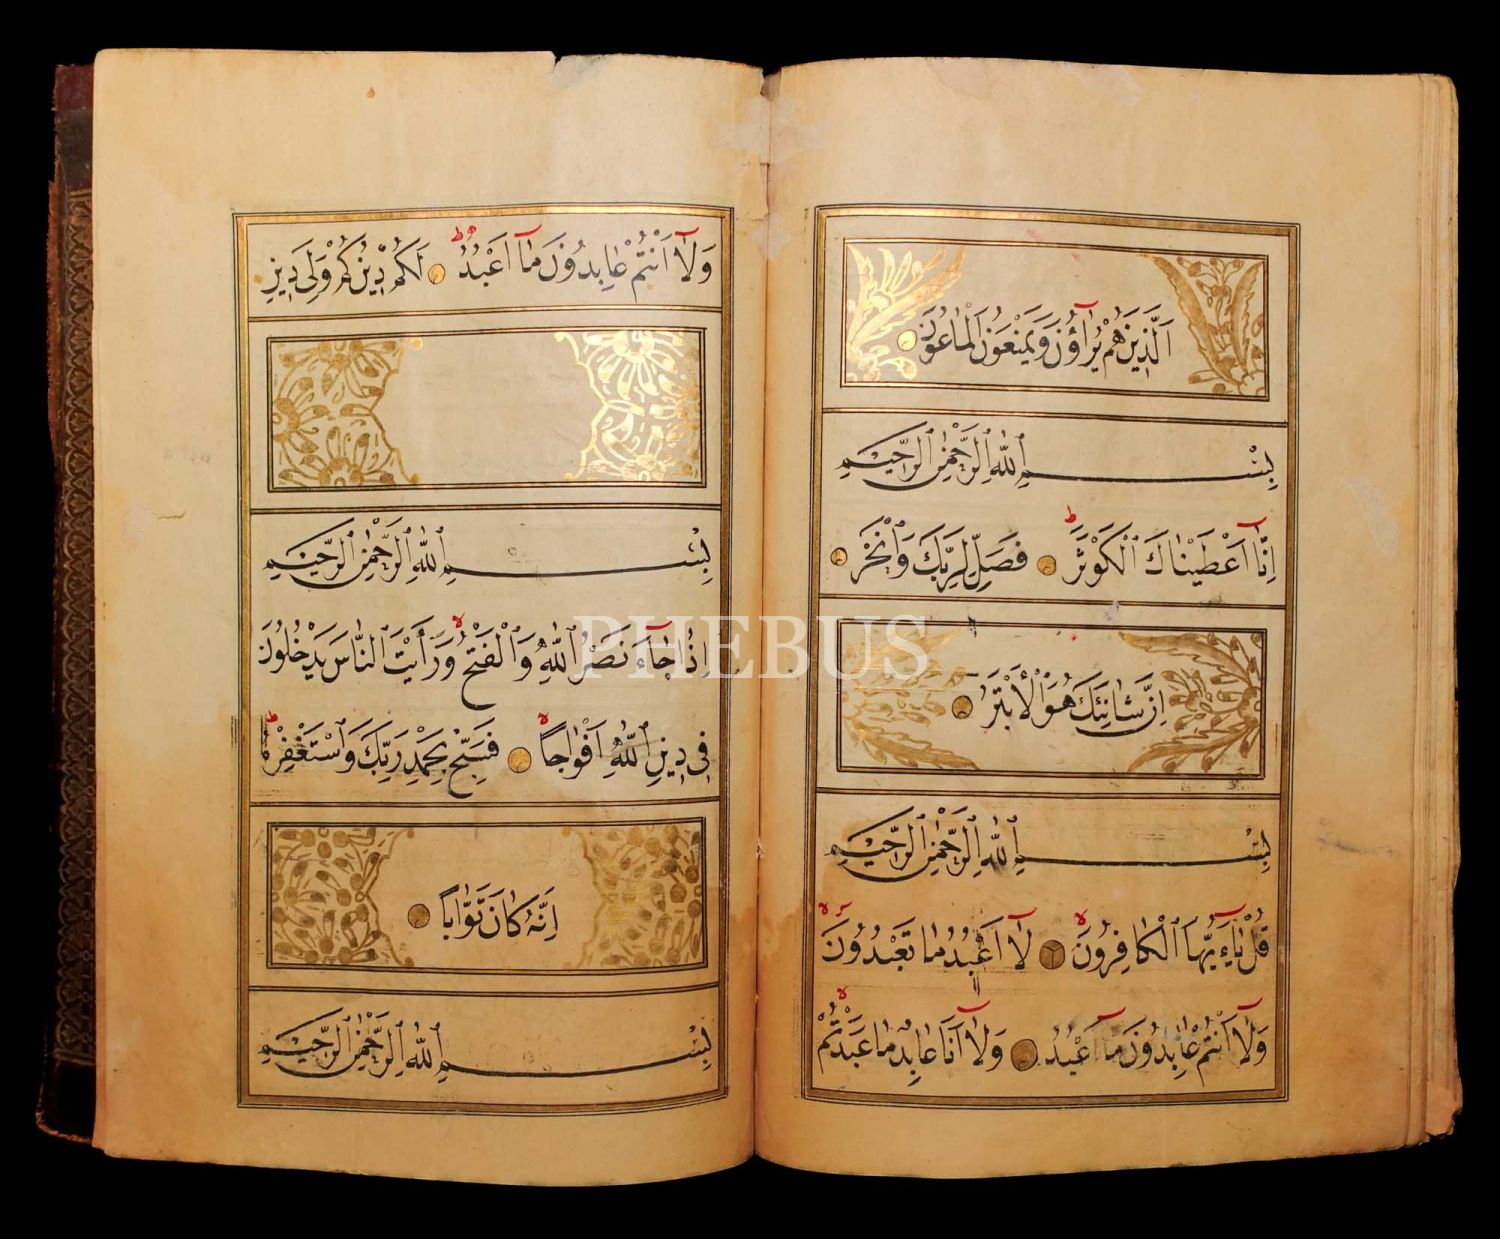 اَلَّذِينَ هُمْ يُرَآؤُنَ وَيَمْنَعُونَ الْمَاعُونَ
بِسْمِ اللّٰهِ الرَّحْمٰنِ الرَّحِيمِ
اِنَّٓا اَعْطَيْنَاكَ الْكَوْثَرَ ط فَصَلِّ لِرَبِّكَ وَانْحَرْ
اِنَّ شَانِئَكَ هُوَ الْاَبْتَرُ
بِسْمِ اللّٰهِ الرَّحْمٰنِ الرَّحِيمِ
قُلْ يَٓا اَيُّهَا الْكَافِرُونَ لا لَٓا اَعْبُدُ مَا تَعْبُدُونَ لا
وَلَٓا اَنْتُمْ عَابِدُونَ مَٓا اَعْبُدُ وَلَٓا اَنَا عَابِدٌ مَا عَبَدْتُمْ لا
وَلَٓا اَنْتُمْ عَابِدُونَ مَٓا اَعْبُدُ ط لَكُمْ دِينُكُمْ وَلِيَ دِينِ
بِسْمِ اللّٰهِ الرَّحْمٰنِ الرَّحِيمِ
اِذَا جَٓاءَ نَصْرُ اللّٰهِ وَالْفَتْحُ لا وَرَاَيْتَ النَّاسَ يَدْخُلُونَ
فِي دِينِ اللّٰهِ اَفْوَاجًا لا فَسَبِّحْ بِحَمْدِ رَبِّكَ وَاسْتَغْفِرْهُ ط
اِنَّهُ كَانَ تَوَّابًا
بِسْمِ اللّٰهِ الرَّحْمٰنِ الرَّحِيمِ
PHEBUS